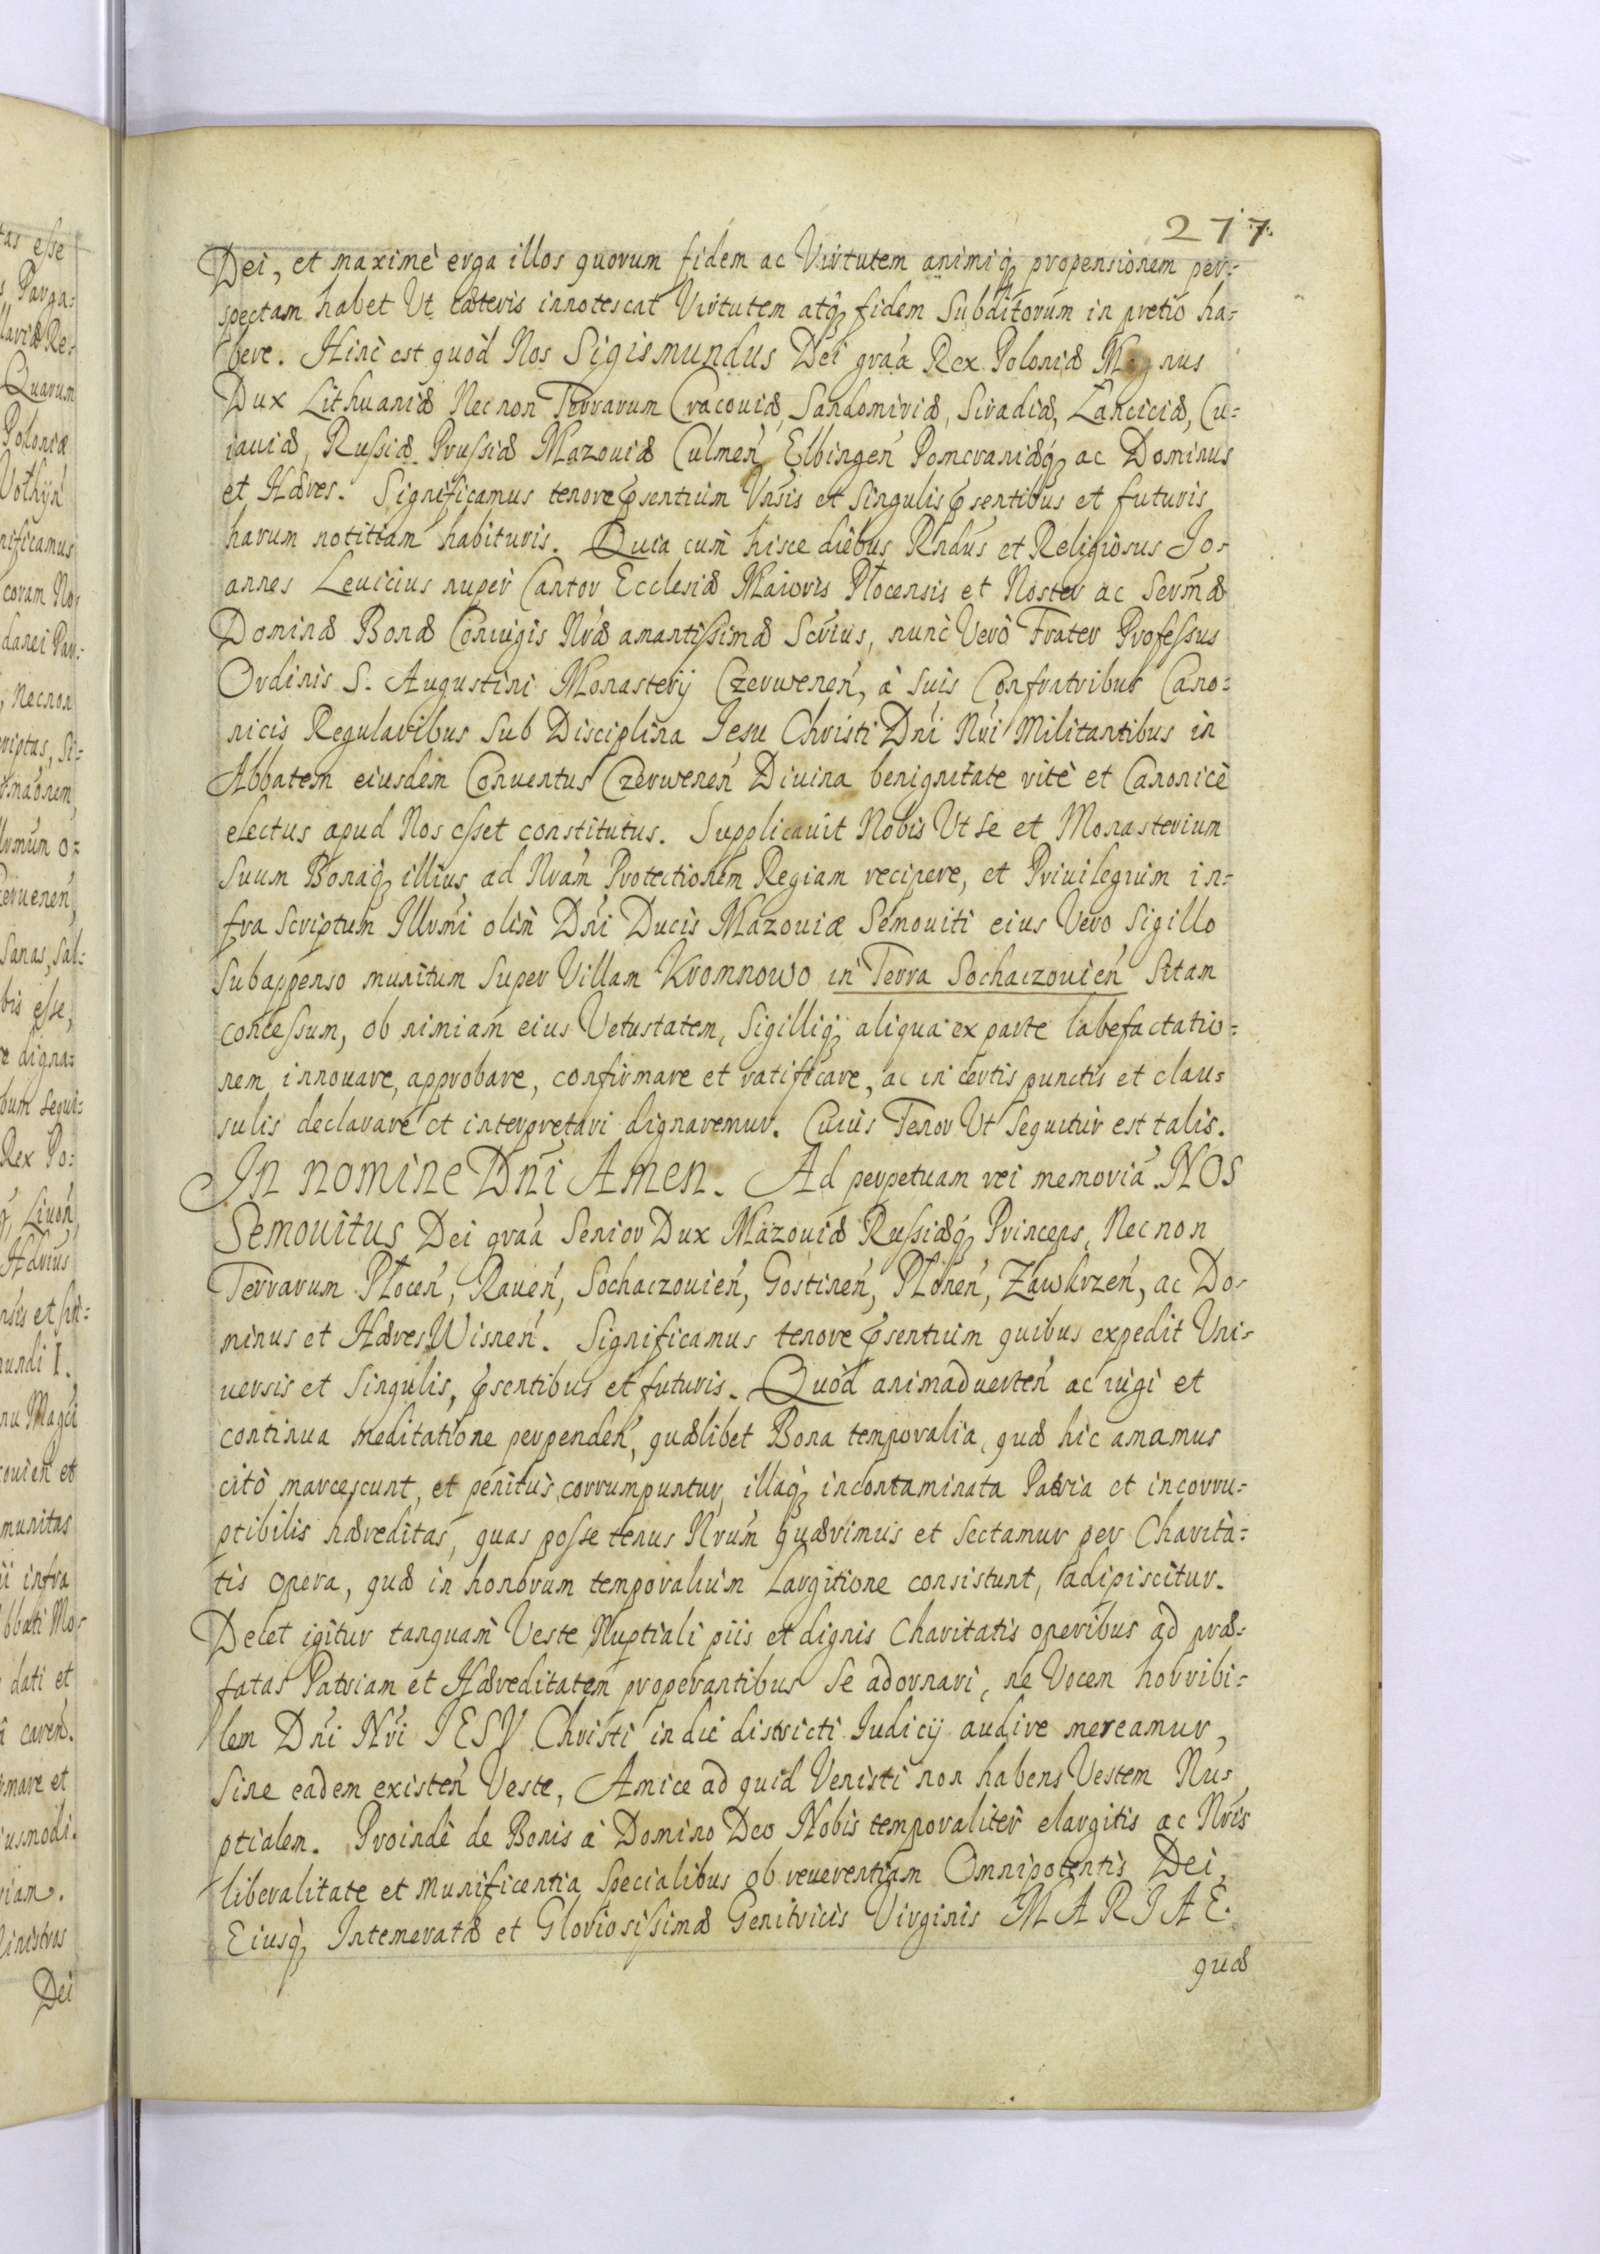 277
Dei, et maximè erga illos quorum fidem ac Virtutem animiq; propensionem per=
spectam habet Ut cæteris innotescat Virtutem atq; fidem Subditorum in pretio ha=
bere. Hinc est quòd Nos Sigismundus Dei graã Rex Poloniæ Magnus
Dux Lithuaniæ Necnon Terrarum Cracouiæ, Sandomiriæ, Siradiæ, Lanciciæ, Cu=
iauiæ, Russiæ Prussiæ Mazouiæ Culmeñ Elbingeñ Pomeraniæq; ac Dominus
et Hæres. Significamus tenore pſentium Vnſis et Singulis pſentibus et futuris
harum notitiam habituris. Quia cum hisce diebus Rndus et Religiosus Jo=
annes Leuicius nuper Cantor Ecclesiæ Maioris Plocensis et Noster ac Sermæ
Dominæ Bonæ Coniugis Nræ amantissimæ Scrius, nunc Verò Frater Professus
Ordinis S. Augustini Monasterij Czerweneń, à Suis Confratribus Cano=
nicis Regularibus Sub Disciplina Jesu Christi Dni Nri Militantibus in
Abbatem eiusdem Conuentus Czerweneń Diuina benignitate ritè et Canonicè
electus apud Nos esset constitutus. Supplicauit Nobis Ut Se et Monasterium
Suum Bonaq; illius ad Nram Protectionem Regiam recipere, et Priuilegium in=
fra Scriptum Illrmi olim Dni Ducis Mazouiæ Semouiti eius Vero Sigillo
Subappenso munitum Super Villam Kromnowo in Terra Sochaczouień Sitam
concessum, ob nimiam eius Vetustatem, Sigilliq; aliqua ex parte labefactatio=
nem innouare, approbare, confirmare et ratificare, ac in certis punctis et clau=
sulis declarare et interpretari dignaremur. Cuius Tenor Ut Sequitur est talis.
In nomine Dni Amen. Ad perpetuam rei memoriã NOS
Semouitus Dei graã Senior Dux Mazouiæ Russiæq; Princeps, Necnon
Terrarum Płoceń, Raueń, Sochaczouień, Gostineń, Płoneń, Zawkrzeń, ac Do=
minus et Hæres Wisneń. Significamus tenore pſentium quibus expedit Vni=
uersis et Singulis, pſentibus et futuris. Quòd animaduerteń ac iugi et
continua meditatione perpendeń, quælibet Bona temporalia, quæ hic amamus
citò marcescunt, et penitus corrumpuntur, illaq; incontaminata Patria et incorru=
ptibilis hæreditas, quas posse tenus Nrum quærimus et Sectamur per Charita=
tis opera, quæ in honorum temporalium Largitione consistunt, adipiscitur.
Decet igitur tanquam Veste Nuptiali piis et dignis Charitatis operibus ad præ=
fatas Patriam et Hæreditatem properantibus Se adornari, ne Vocem horribi=
lem Dni Nri JESV Christi in die districti Judicij audire mereamur,
Sine eadem existeń Veste, Amice ad quid Venisti non habens Vestem Nu=
ptialem. Proinde de Bonis à Domino Deo Nobis temporaliter elargitis ac Nris
liberalitate et munificentia Specialibus ob reuerentiam Omnipotentis Dei,
Eiusq; Intemeratæ et Gloriosissimæ Genitricis Virginis MARIAE.
quæ